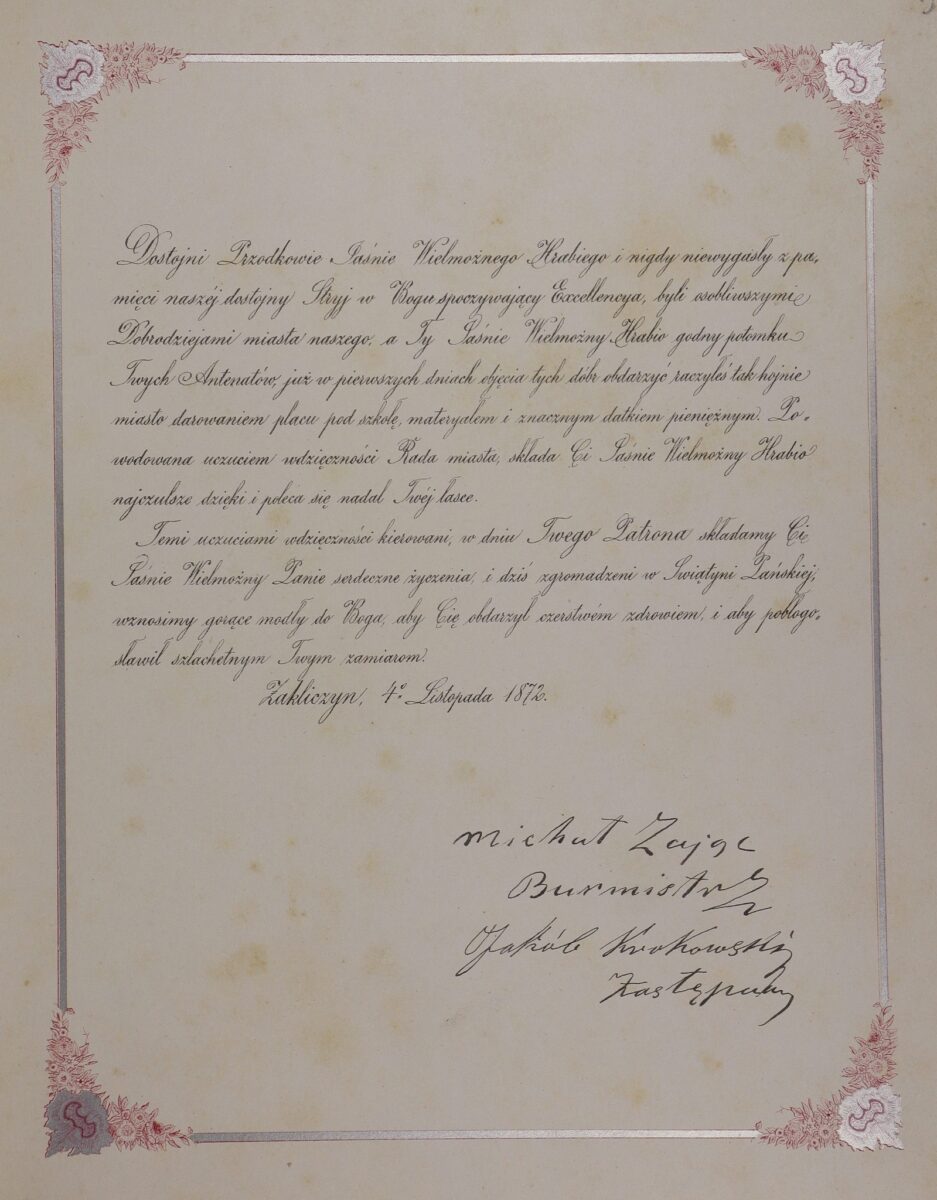 Dostojni Przodkowie Jaśnie Wielmożnego Hrabiego i nigdy niewygasły z pa-
mięci naszéj dostojny Stryj w Bogu spoczywający Excellencya, byli osobliwszymi
Dobrodziejami miasta naszego, a Ty Jaśnie Wielmożny Hrabio godny potomku
Twych Antenatów, już w pierwszych dniach objęcia tych dóbr obdarzyć raczyłeś tak hojnie
miasto darowaniem placu pod szkołę, materyałem i znacznym datkiem pieniężnym. Po-
wodowana uczuciem wdzięczności Rada miasta, składa Ci Jaśnie Wielmożny Hrabio
najczulsze dzięki i poleca się nadal Twéj łasce.
Temi uczuciami wdzięczności kierowani, w dniu Twego Patrona składamy Ci
Jaśnie Wielmożny Panie serdeczne życzenia, i dziś zgromadzeni w Swiątyni Pańskiej,
wznosimy gorące modły do Boga, aby Cię obdarzył czerstwém zdrowiem, i aby pobłogo-
sławił szlachetnym Twym zamiarom.
Zakliczyn, 4º Listopada 1872.
Michał Zając
Burmistrz
Jakób Krokowski
Zastępca